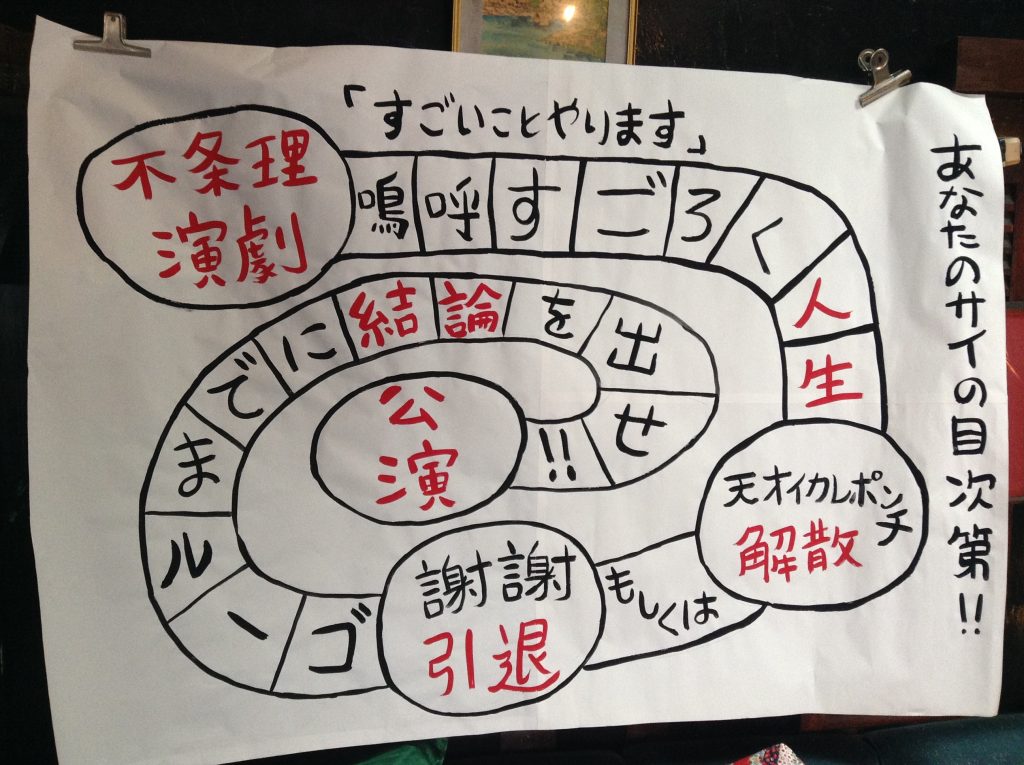 「すごいことやります」
不条理
演劇
嗚呼すごろく人生
天才イカレポンチ
解散
もしくは
謝謝
引退
ゴールまでに結論を出せ!!
公演
あなたのサイの目次第!!